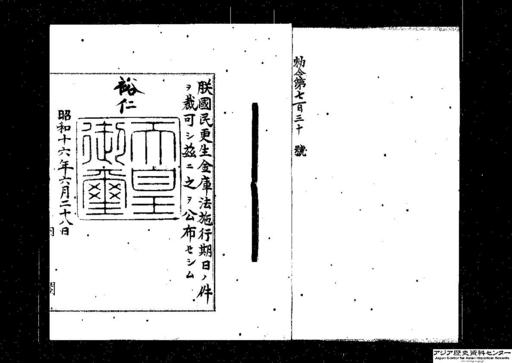 勅令第七百三十號
朕國民更生金庫法施行期日ノ件
ヲ裁可シ茲ニ之ヲ公布セシム
裕仁
天皇御璽
昭和十六年六月二十八日
アジア歴史資料センター
Japan Center for Asian Historical Records